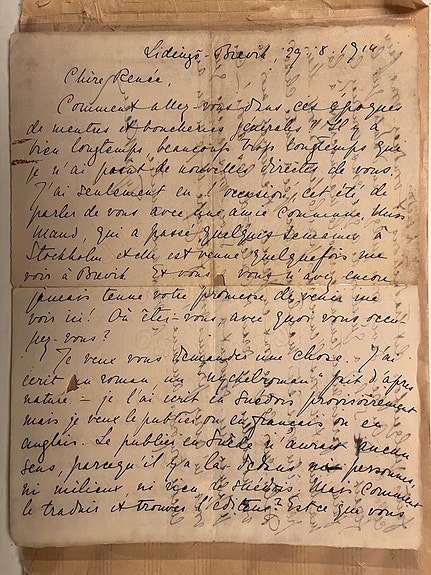 Lidingö-Brevik, 29.8.1914
Chère Renée,
Comment allez-vous dans ces époques
de meutres et boucheries générales? Il y a
bien longtemps beaucoup trop longtemps que
je n'ai point de nouvelles directes de vous.
J'ai seulement eu l'occasion, cet été, de
parler de vous avec une amie commune, Miss
Maud, qui a passé quelques semaines à
Stockholm et elle est venue quelquefois me
voir à Brevik. Et vous vous n'avez encore
jamais tenue votre promesse de venir me
voir ici! Où êtes-vous, avec quoi vous occu
pez-vous?
Je veux vous demander une chose. J'ai
écrit un roman, un "nyckelroman" fait d'après
nature – je l'ai écrit en suédois provisoirement
mais je veux le publier ou en français ou en
anglais. Le publier en Suède n'aurait aucun
sens, parcequ'il y a là dedans ni personnes,
ni milieux ni rien de suédois. Mais comment
le traduir et trouver l'éditeur? Est ce que vous